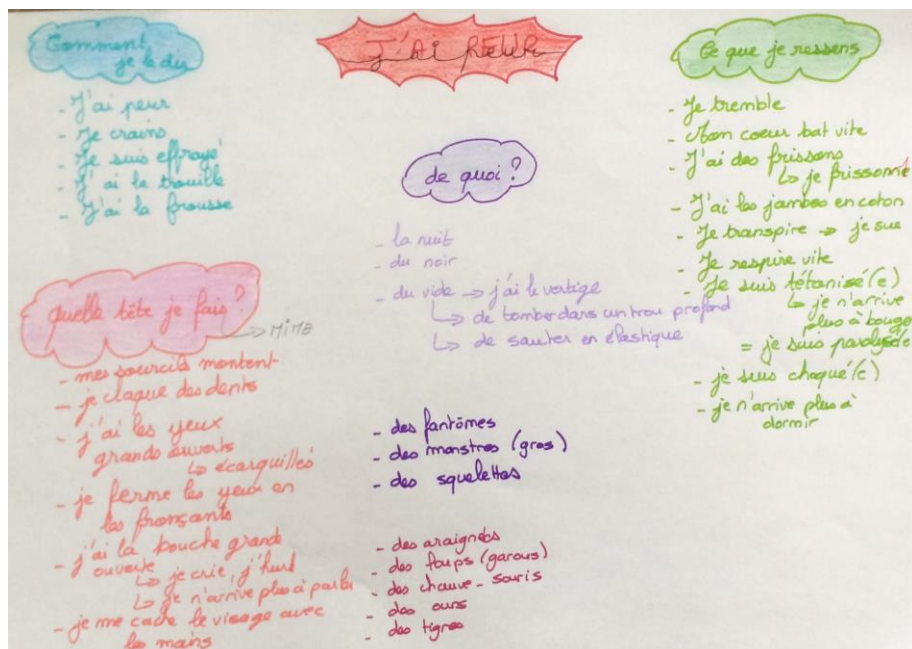 J'AI PEUR
Comment
je le dis
- J'ai peur
- Je crains
- Je suis effrayé
- J'ai la trouille
- J'ai la frousse
Quelle tête je fais ?
→ MIME
- mes sourcils montent
- je claque des dents
- j'ai les yeux
grands ouverts
↳ écarquillés
- je ferme les yeux en
les fronçants
- j'ai la bouche grand
ouverte
↳ je crie, j'hurl
↳ je n'arrive plus à parler
- je me cache le visage avec
les mains
de quoi ?
- la nuit
- du noir
- du vide → j'ai le vertige
↳ de tomber dans un trou profond
↳ de sauter en élastique
- des fantômes
- des monstres (gros)
- des squelettes
- des araignées
- des loups (garous)
- des chauve-souris
- des ours
- des tigres
Ce que je ressens
- Je tremble
- Mon coeur bat vite
- J'ai des frissons
↳ je frissonne
- J'ai les jambes en coton
- Je transpire → je sue
- Je respire vite
- Je suis tétanisé(e)
↳ je n'arrive
plus à bouger
= je suis paralysée
- je suis choqué(e)
- je n'arrive plus à
dormir